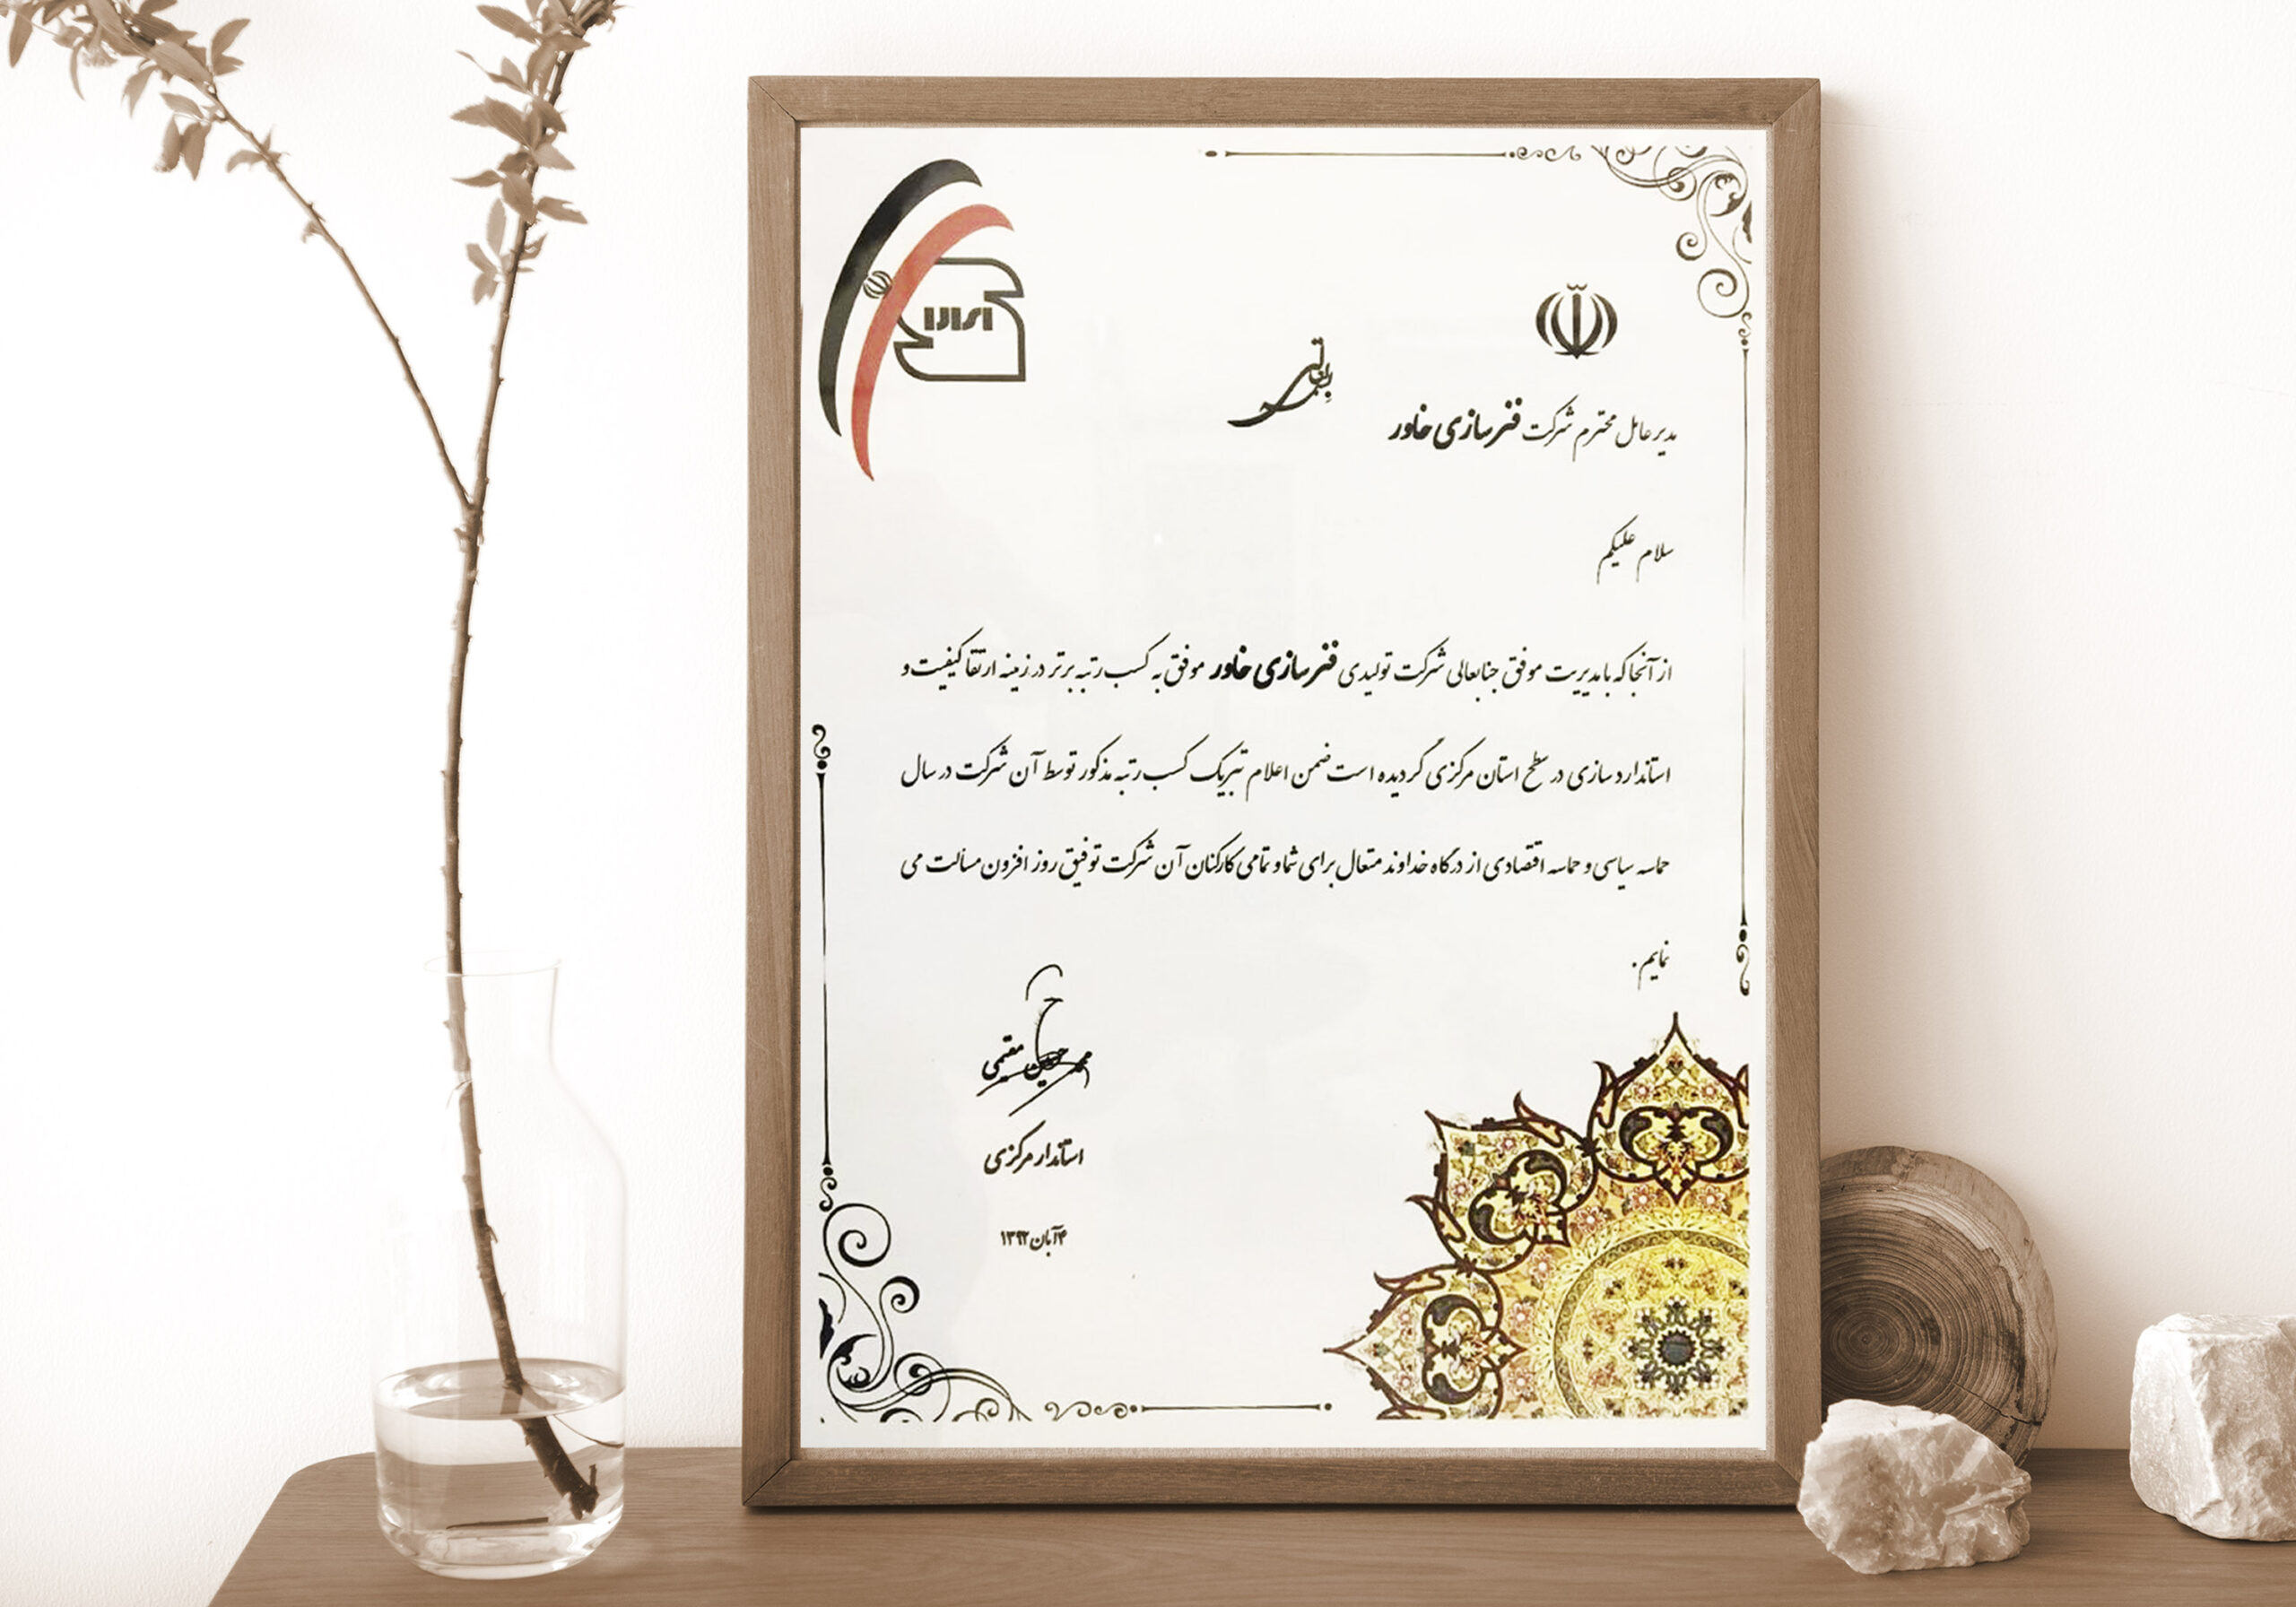 بسمه تعالی
مدیر عامل محترم شرکت فنرسازی خاور
سلام علیکم
از آنجا که با مدیریت موفق جنابعالی شرکت تولیدی فنرسازی خاور موفق به کسب رتبه برتر در زمینه ارتقا کیفیت و
استاندارد سازی در سطح استان مرکزی گردیده است ضمن اعلام تبریک کسب رتبه مذکور توسط آن شرکت در سال
حماسه سیاسی و حماسه اقتصادی از درگاه خداوند متعال برای شما و تمامی کارکنان آن شرکت توفیق روز افزون مسالت می
نمایم.
محمد حسین مقیمی
استاندار مرکزی
۴ آبان ۱۳۹۲